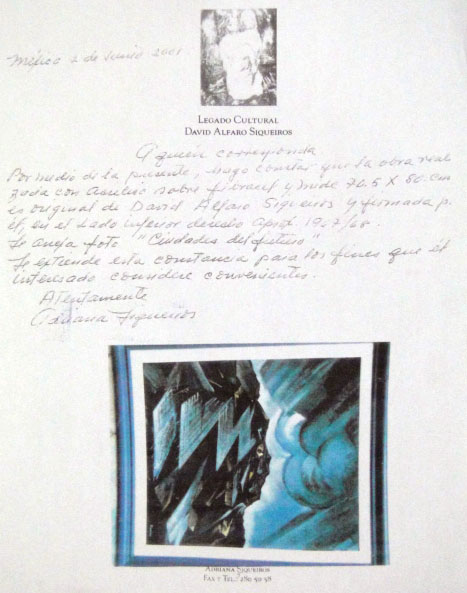 México 2 de Junio 2001.
LEGADO CULTURAL
DAVID ALFARO SIQUEIROS
A quien corresponda
Por medio de la presente, hago constar que la obra reali
zada con sobre y mide 70.5 X 80. cm.
es original de David Alfaro Siqueiros y firmada p.
él, en el lado inferior derecho
Se aneja foto "Ciudades del futuro"
Se extiende esta constancia para los fines que el
interesado considere convenientes.
Atentamente
Adriana Siqueiros
ADRIANA SIQUEIROS
FAX Y TEL. 280 50 58